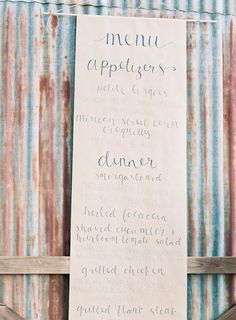 menu
appetizers
petite burgers
mexican street corn
croquettes
dinner
smorgasboard
herbed focaccia
shaved cucumber +
heirloom tomato salad
grilled chicken
grilled flank steak